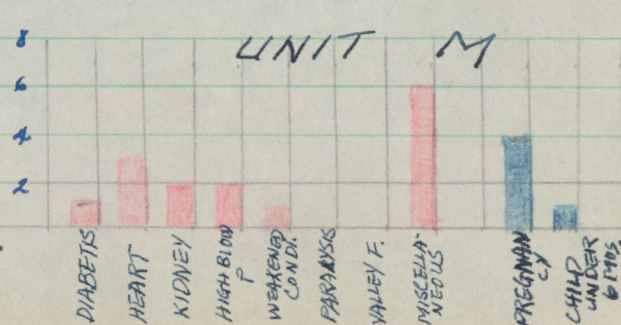 UNIT M
8
6
4
2
DIABETIS
HEART
KIDNEY
HIGH BLOOD
P
WEAKENED
CONDI.
PARALYSIS
VALEY F.
MISCELLA-
NEOUS
PREGNAN
CY
CHILD
UNDER
6 MOS.